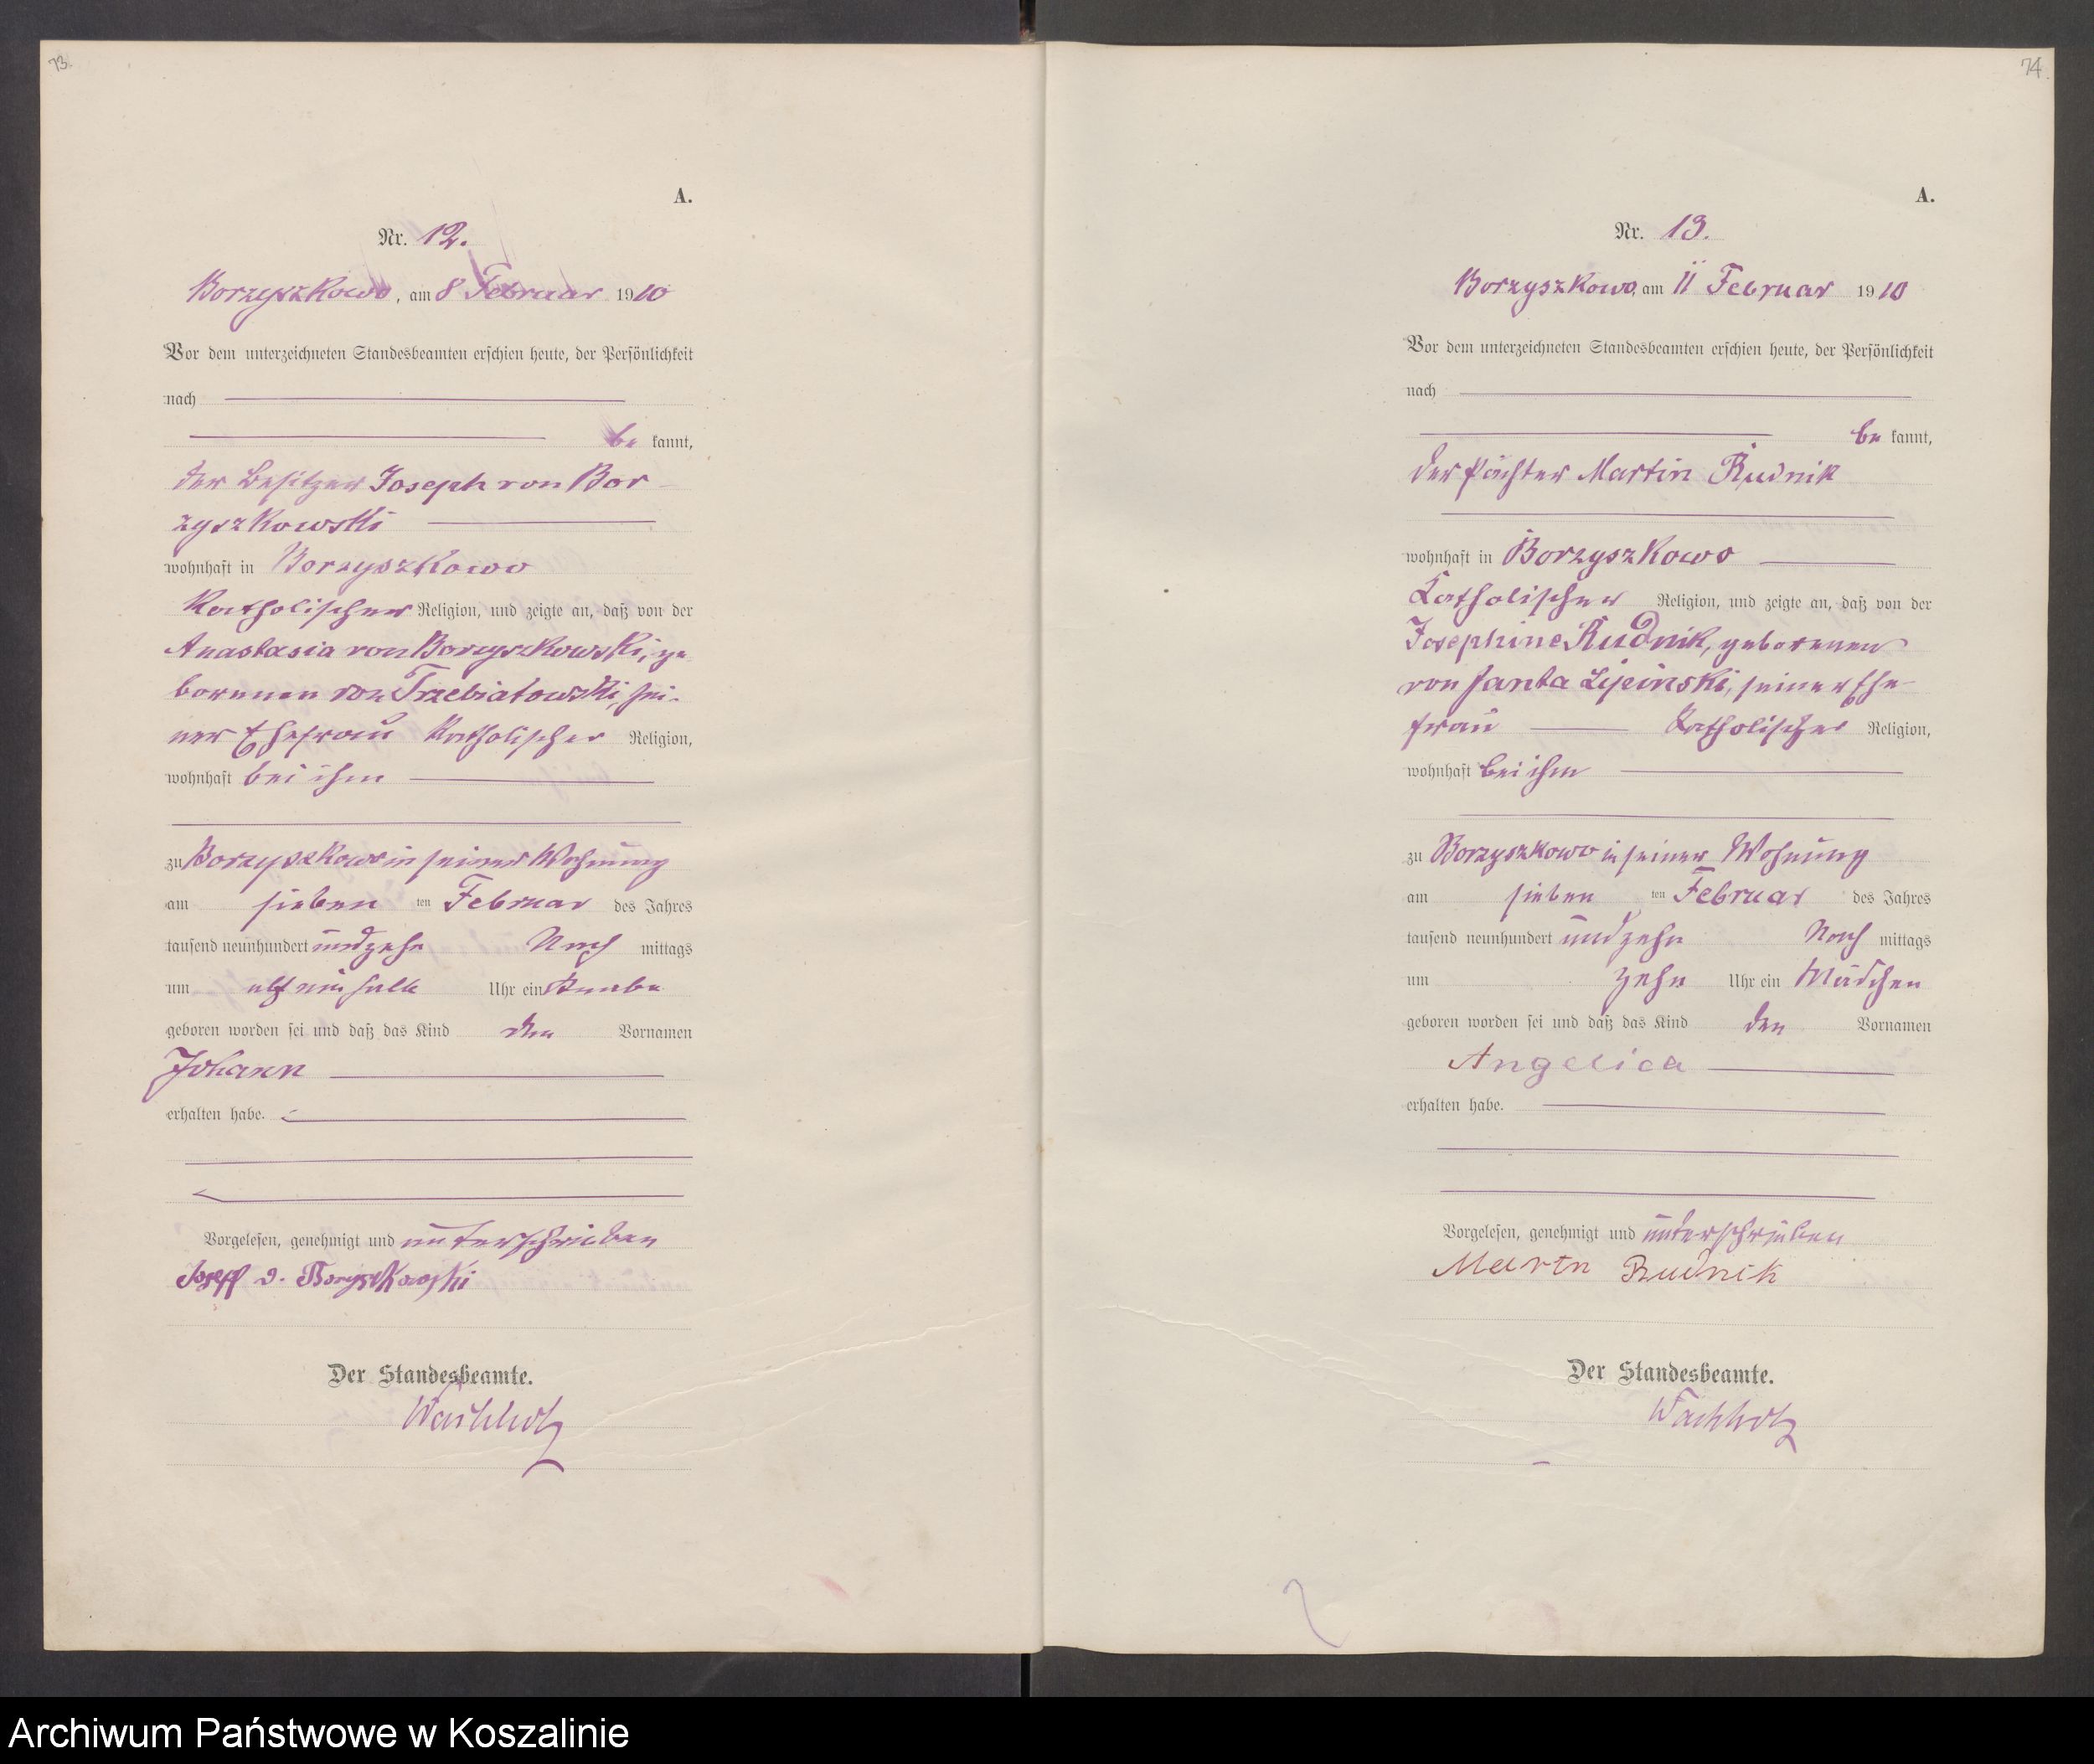 73.
A.
Nr. 12.
Borzyszkowo, am 8 Februar 1910
Vor dem unterzeichneten Standesbeamten erschien heute, der Persönlichkeit
nach
be kannt,
der Besitzer Joseph von Bor-
zyszkowski
wohnhaft in Borzyszkowo
Katholischer Religion, und zeigte an, daß von der
Anastasia von Borzyszkowski, ge
borenen von Trzebiatowski, sei-
ner Ehefrau Katholischer Religion,
wohnhaft bei ihm
zu Borzyszkowo in seiner Wohnung
am sieben ten Februar des Jahres
tausend neunhundert undzehn Nach mittags
um elf Uhr ein Knabe
geboren worden sei und daß das Kind den Vornamen
Johann
erhalten habe.
Vorgelesen, genehmigt und unterschrieben
Josef v. Borzyszkowski
Der Standesbeamte.
Wachholz
74.
A.
Nr. 13.
Borzyszkowo, am 11 Februar 1910
Vor dem unterzeichneten Standesbeamten erschien heute, der Persönlichkeit
nach
be kannt,
der Pächter Martin Rudnik
wohnhaft in Borzyszkowo
Katholischer Religion, und zeigte an, daß von der
Josephine Rudnik, geborenen
von Janta Lipinski, seiner Ehe-
frau Katholischer Religion,
wohnhaft bei ihm
zu Borzyszkowo in seiner Wohnung
am sieben ten Februar des Jahres
tausend neunhundert undzehn Nach mittags
um zehn Uhr ein Mädchen
geboren worden sei und daß das Kind den Vornamen
Angelica
erhalten habe.
Vorgelesen, genehmigt und unterschrieben
Martin Rudnik
Der Standesbeamte.
Wachholz
Archiwum Państwowe w Koszalinie